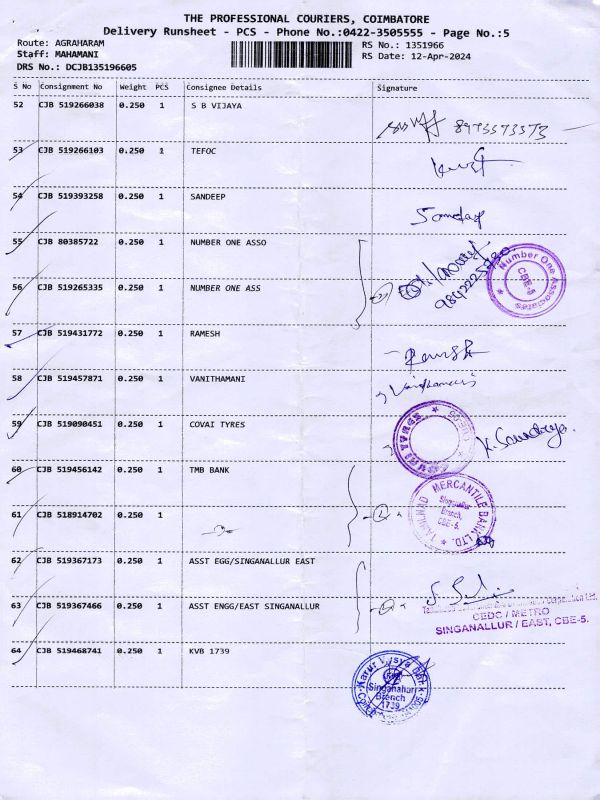 THE PROFESSIONAL COURIERS, COIMBATORE
Delivery Runsheet - PCS - Phone No.:0422-3505555 - Page No.:5
Route: AGRAHARAM RS No.: 1351966
Staff: MAHAMANI RS Date: 12-Apr-2024
DRS No.: DCJB135196605
S No Consignment No Weight PCS Consignee Details Signature
52 CJB 519266038 0.250 1 S B VIJAYA
8973573373
53 CJB 519266103 0.250 1 TEFOC
54 CJB 519393258 0.250 1 SANDEEP
55 CJB 80385722 0.250 1 NUMBER ONE ASSO
Number One Associates
CBE-5
56 CJB 519265335 0.250 1 NUMBER ONE ASS
57 CJB 519431772 0.250 1 RAMESH
Ramesh
58 CJB 519457871 0.250 1 VANITHAMANI
Vanithamani
59 CJB 519090451 0.250 1 COVAI TYRES
60 CJB 519456142 0.250 1 TMB BANK
TAMILNAD MERCANTILE BANK LTD.
Singanallur
Branch,
CBE-5.
61 CJB 518914702 0.250 1
62 CJB 519367173 0.250 1 ASST EGG/SINGANALLUR EAST
63 CJB 519367466 0.250 1 ASST ENGG/EAST SINGANALLUR
CEDC / METRO
SINGANALLUR / EAST, CBE-5.
64 CJB 519468741 0.250 1 KVB 1739
Karur Vysya Bank
Singanallur
Branch
1739